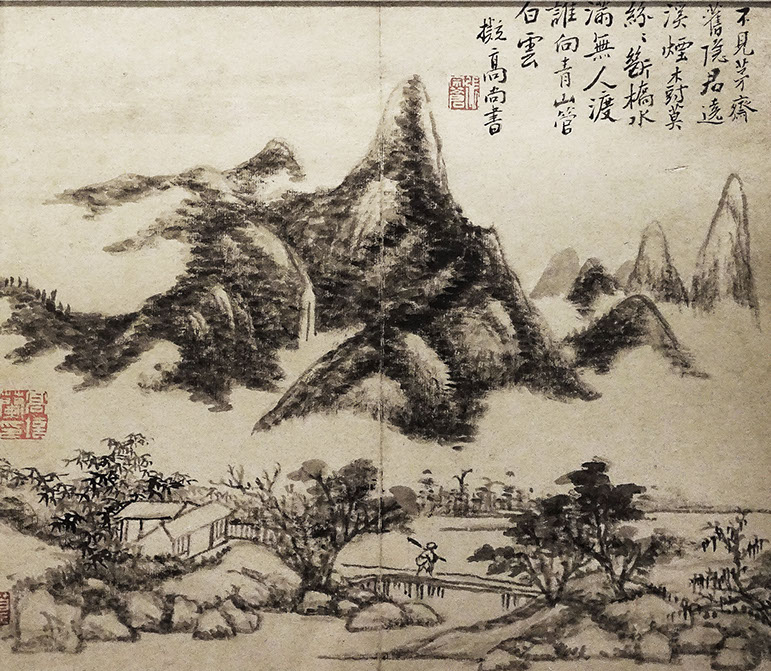 不見芳齋
舊隱君遠
溪煙樹莫
紛〻斷橋水
滿無人渡
誰向青山管
白雲
擬高尚書